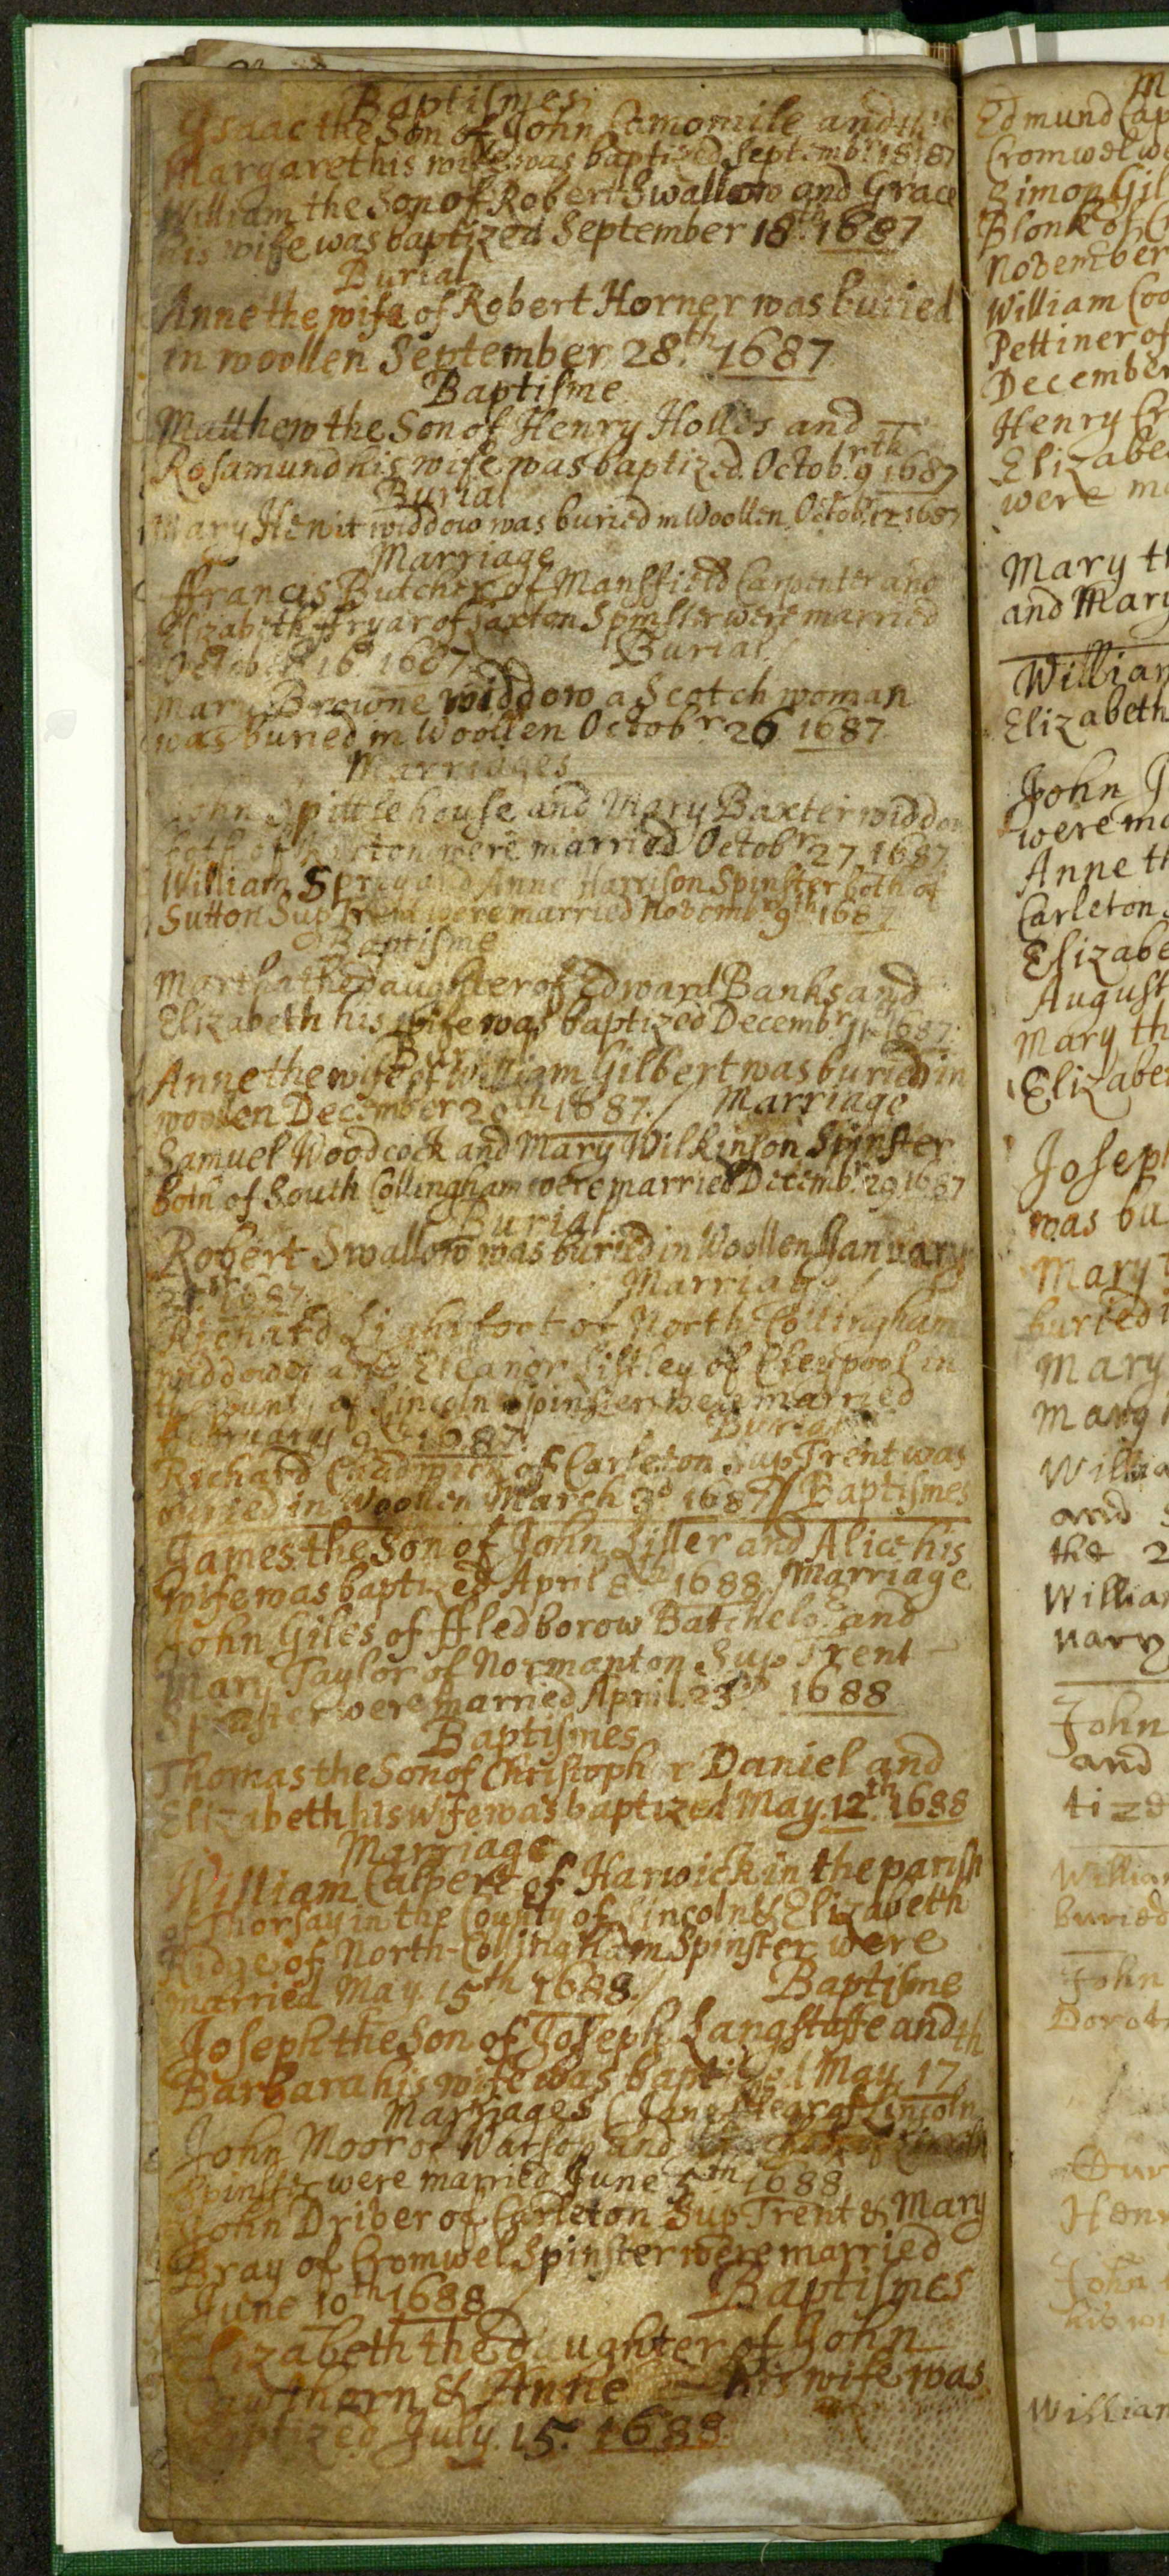 Baptismes
Isaac the Son of John Camomile and
Margaret his wife was baptized Septembr 18 87
William the Son of Robert Swallow and Grace
his wife was baptized September 18th 1687
Burial
Anne the wife of Robert Horner was buried
in woollen September 28th 1687
Baptisme
Matthew the Son of Henry Holles and
Rosamund his wife was baptized Octobr 9th 1687
Burial
Mary widdow was buried in Woollen Octobr 12 1687
Marriage
ffrancis Butcher of Mansfield Carpenter and
Elizabeth ffryar of Laxton Spinster were married
October 16 1687
Burial
Mary Browne widdow a Scotch woman
was buried in Woollen Octobr 26 1687
Marriages
John Spittlehouse and Mary Baxter widdow
both of were married Octobr 27 1687
William and Anne Harrison Spinster both of
Sutton Sup Trent were married Novembr 9th 1687
Baptisme
Martha the Daughter of Edward Banks and
Elizabeth his wife was baptized Decembr 1687
Burial
Anne the wife of William Gilbert was buried in
woollen December 20th 1687. / Marriage
Samuel Woodcock and Mary Wilkinson Spinster
both of South Collingham were married Decembr 29 1687
Burial
Robert Swallow was buried in Woollen January
1687
Marriage
Richard Lightfoot of North Collingham
widdower and Eleanor of Cleypool in
the County of Lincoln Spinster were married
February 9th 1687
Burial
Richard of Carleton Sup Trent was
buried in Woollen March 3d 1687 // Baptismes
James the Son of John Liller and Alice his
wife was baptized April 8th 1688 / Marriage
John Giles of ffledborow Batchelor and
Mary Taylor of Normanton Sup Trent
Spinster were married April 23th 1688
Baptismes
Thomas the Son of Christopher Daniel and
Elizabeth his wife was baptized May 12th 1688
Marriage
William Calpert of Harwick in the parish
of Thorsay in the County of Lincoln & Elizabeth
Ridge of North-Collingham Spinster were
married May 15th 1688 /
Baptisme
Joseph the Son of Joseph Langstaffe and
Barbara his wife was baptized May 17th
Marriages ( Jane of Lincoln
John Moor of Warsop and
Spinster were married June 5th 1688
John Driber of Carleton Sup Trent & Mary
Bray of Cromwel Spinster were married
June 10th 1688
Baptismes
Elizabeth the daughter of John
& Anne his wife was
baptized July 15 1688
Edmund Cap
Cromwel
Simon Gil
Blonk of
November
William Coo
Pettiner of
December
Henry Cr
Elizabe
were m
Mary th
and Mary
William
Elizabeth
John J
were ma
Anne th
Carleton
Elizabe
August
Mary th
Elizabe
Joseph
was bu
Mary
buried
Mary
Mary
Willia
and
the 2
Willia
vary
John
and
tized
William
buried
John
Dorot
Bur
Hen
John
his wi
William